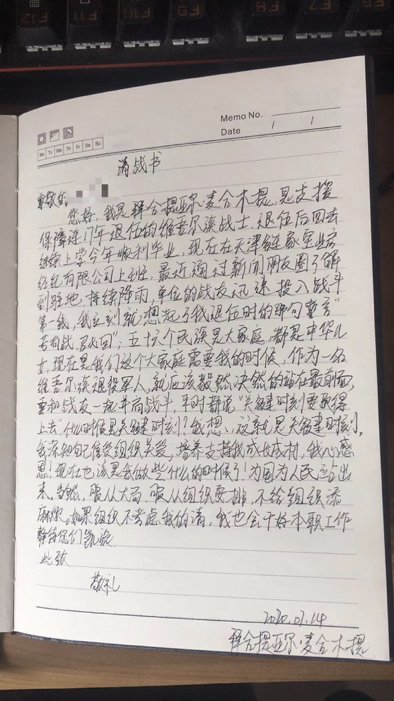 Memo No.
Date / /
Mo Tu We Th Fr Sa Su
请战书
尊敬的
您好，我是拜合提亚尔·麦合木提，是支援
保障连17年退伍的维吾尔族战士，退伍后回去
继续上学今年顺利毕业，现在在天津链家宝业房
经纪有限公司上班，最近通过新闻朋友圈了解
到驻地，持续降雨，单位的战友迅速投入战斗
第一线，我立刻就想起了我退伍时的那句誓言"
若有战，召必回，五十六个民族是大家庭，都是中华儿
女，现在是我们这个大家庭需要我的时候，作为一名
维吾尔族退役军人，就应该毅然决然的站在最前面，
要和战友一起并肩战斗，平时都说"关键时刻要顶得
上去"什么时候是关键时刻！我想，这就是关键时刻，
我深知自己倍受组织关爱，培养支持我成长成材，我心感
恩！现在也该是我做些什么的时候了！为国为人民站出
来，当然，服从大局，服从组织安排，不给组织添
麻烦。如果组织不考虑我的请，我也会干好本职工作
静待您们凯旋
此致
敬礼
2020.07.14
拜合提亚尔·麦合木提